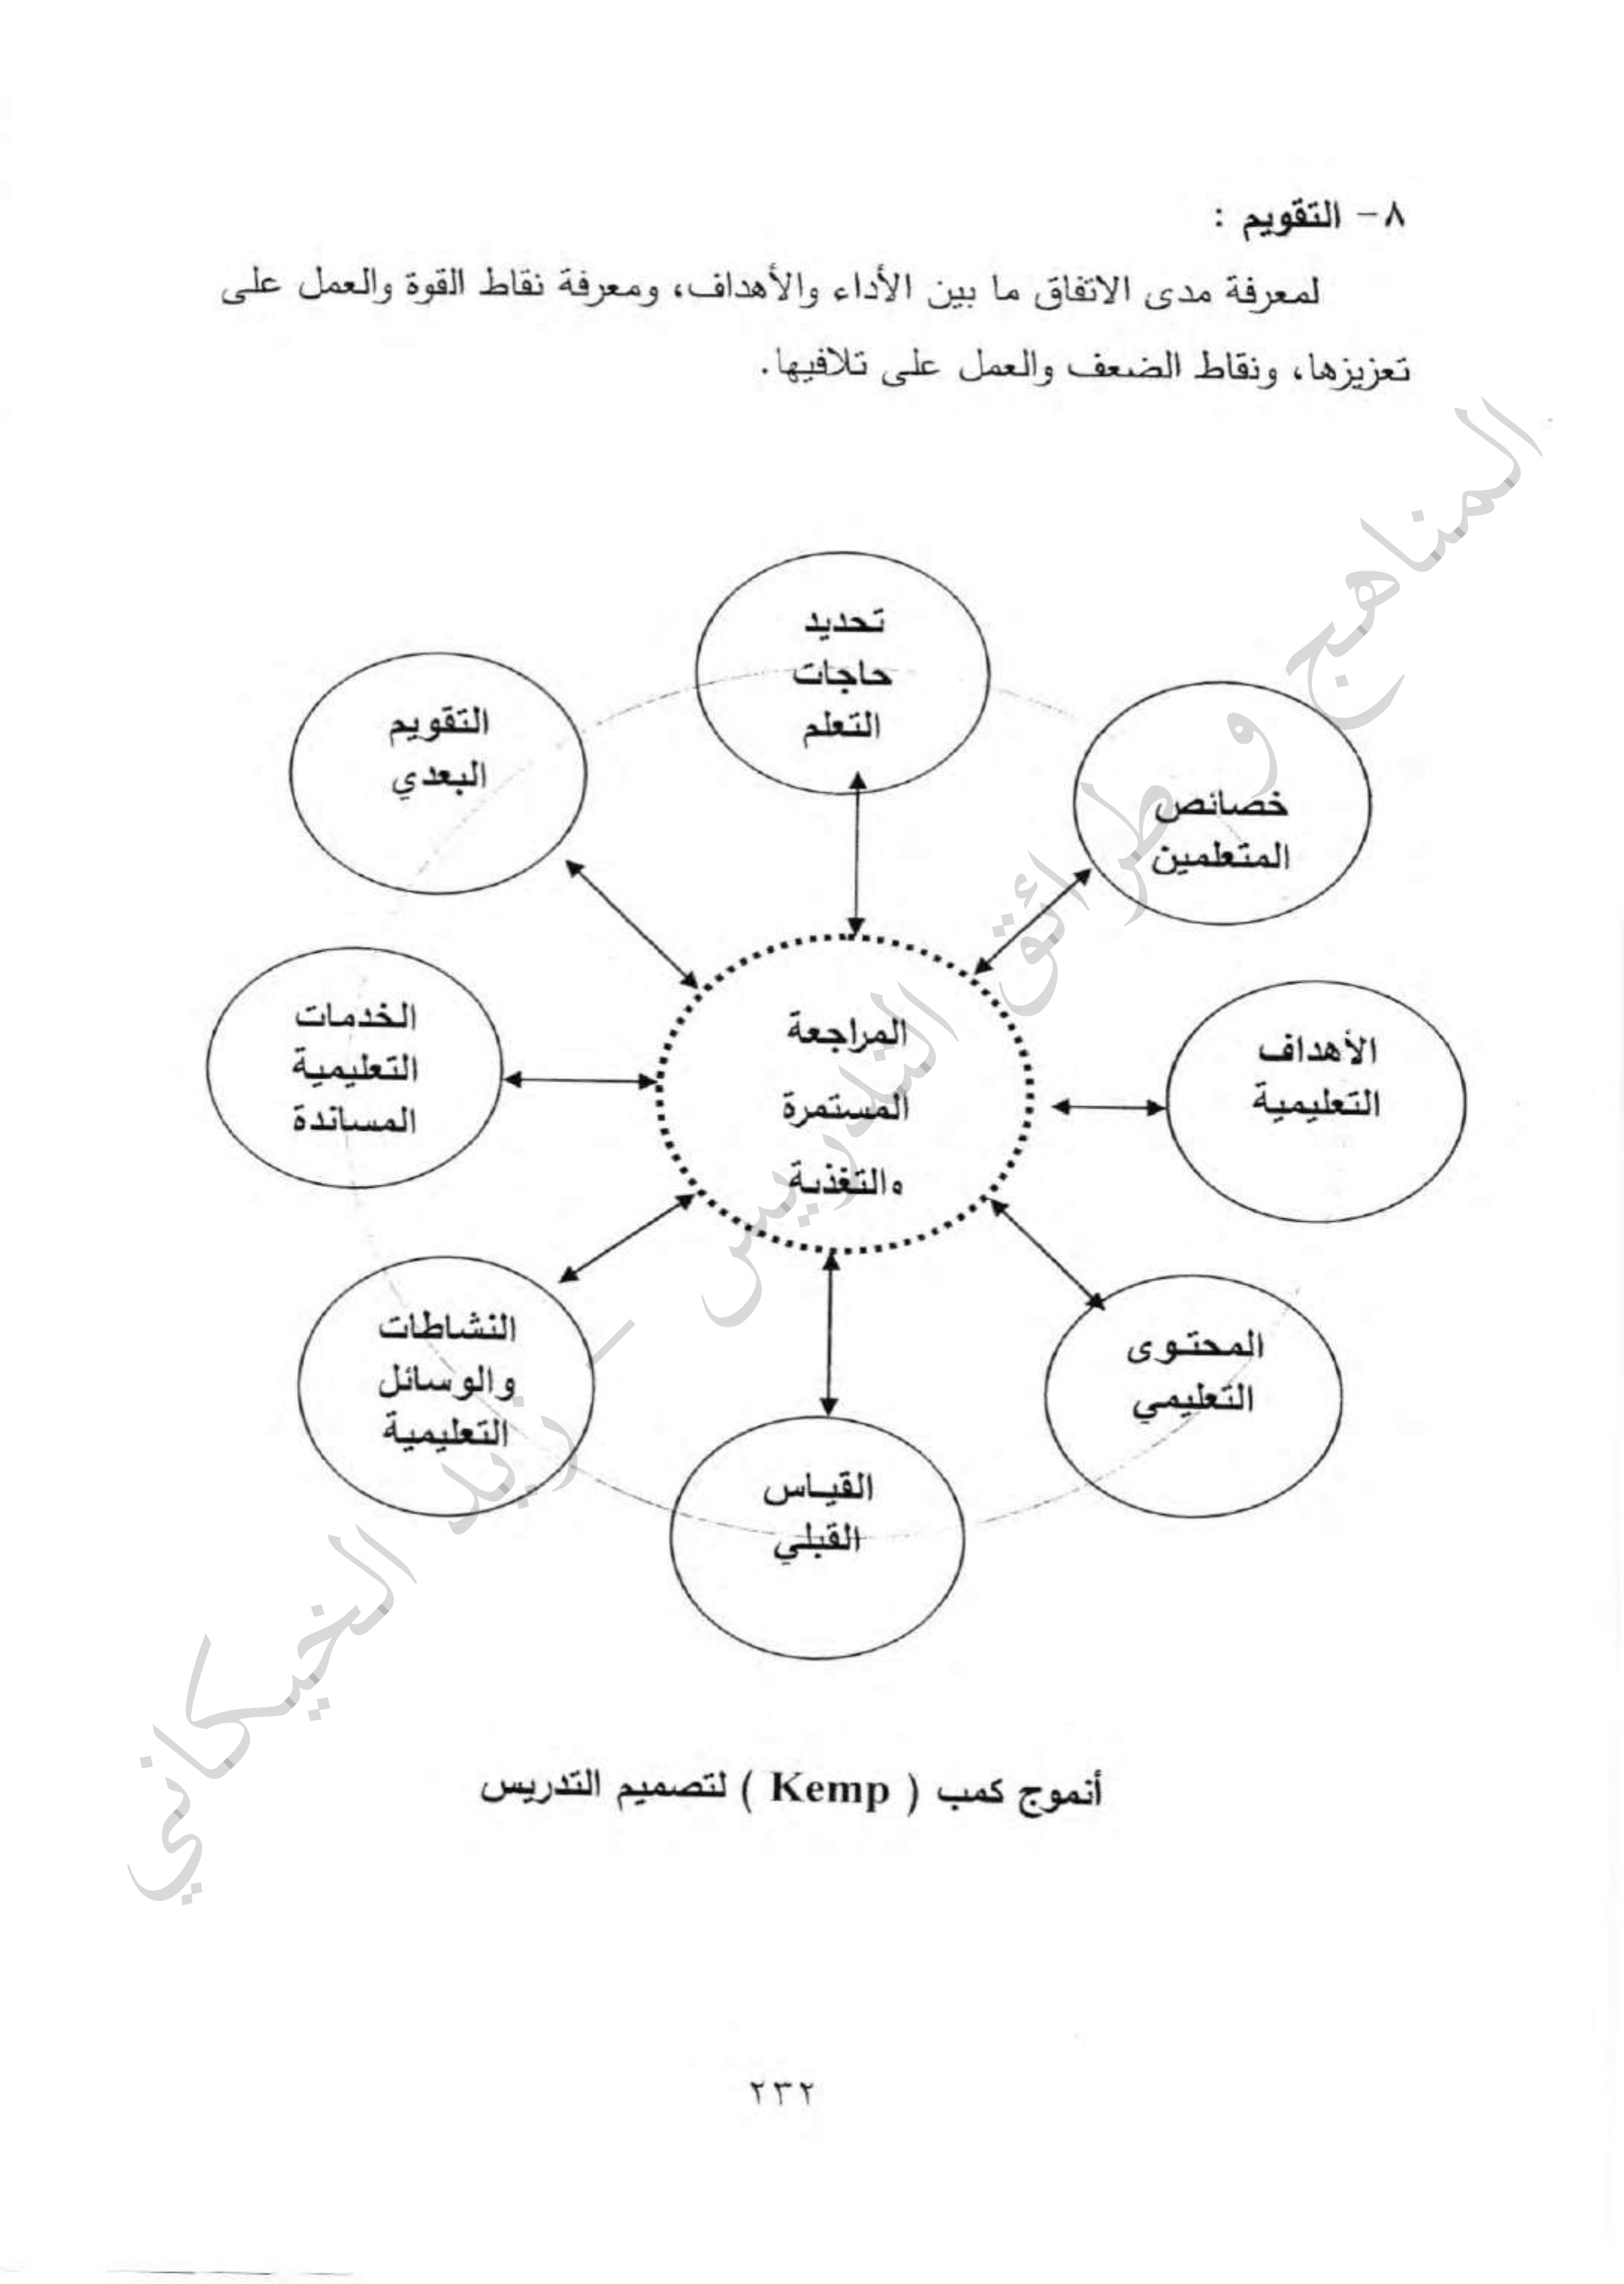 ٨- التقويم :
لمعرفة مدى الاتفاق ما بين الأداء والأهداف، ومعرفة نقاط القوة والعمل على
تعزيزها، ونقاط الضعف والعمل على تلافيها.
تحديد
حاجات
التعلم
خصائص
المتعلمين
الأهداف
التعليمية
المحتوى
التعليمي
القياس
القبلي
النشاطات
والوسائل
التعليمية
الخدمات
التعليمية
المساندة
التقويم
البعدي
المراجعة
المستمرة
والتغذية
أنموج كمب ( Kemp ) لتصميم التدريس
٢٣٢
المناهج و طرائق التدريس – زيد الخيكاني